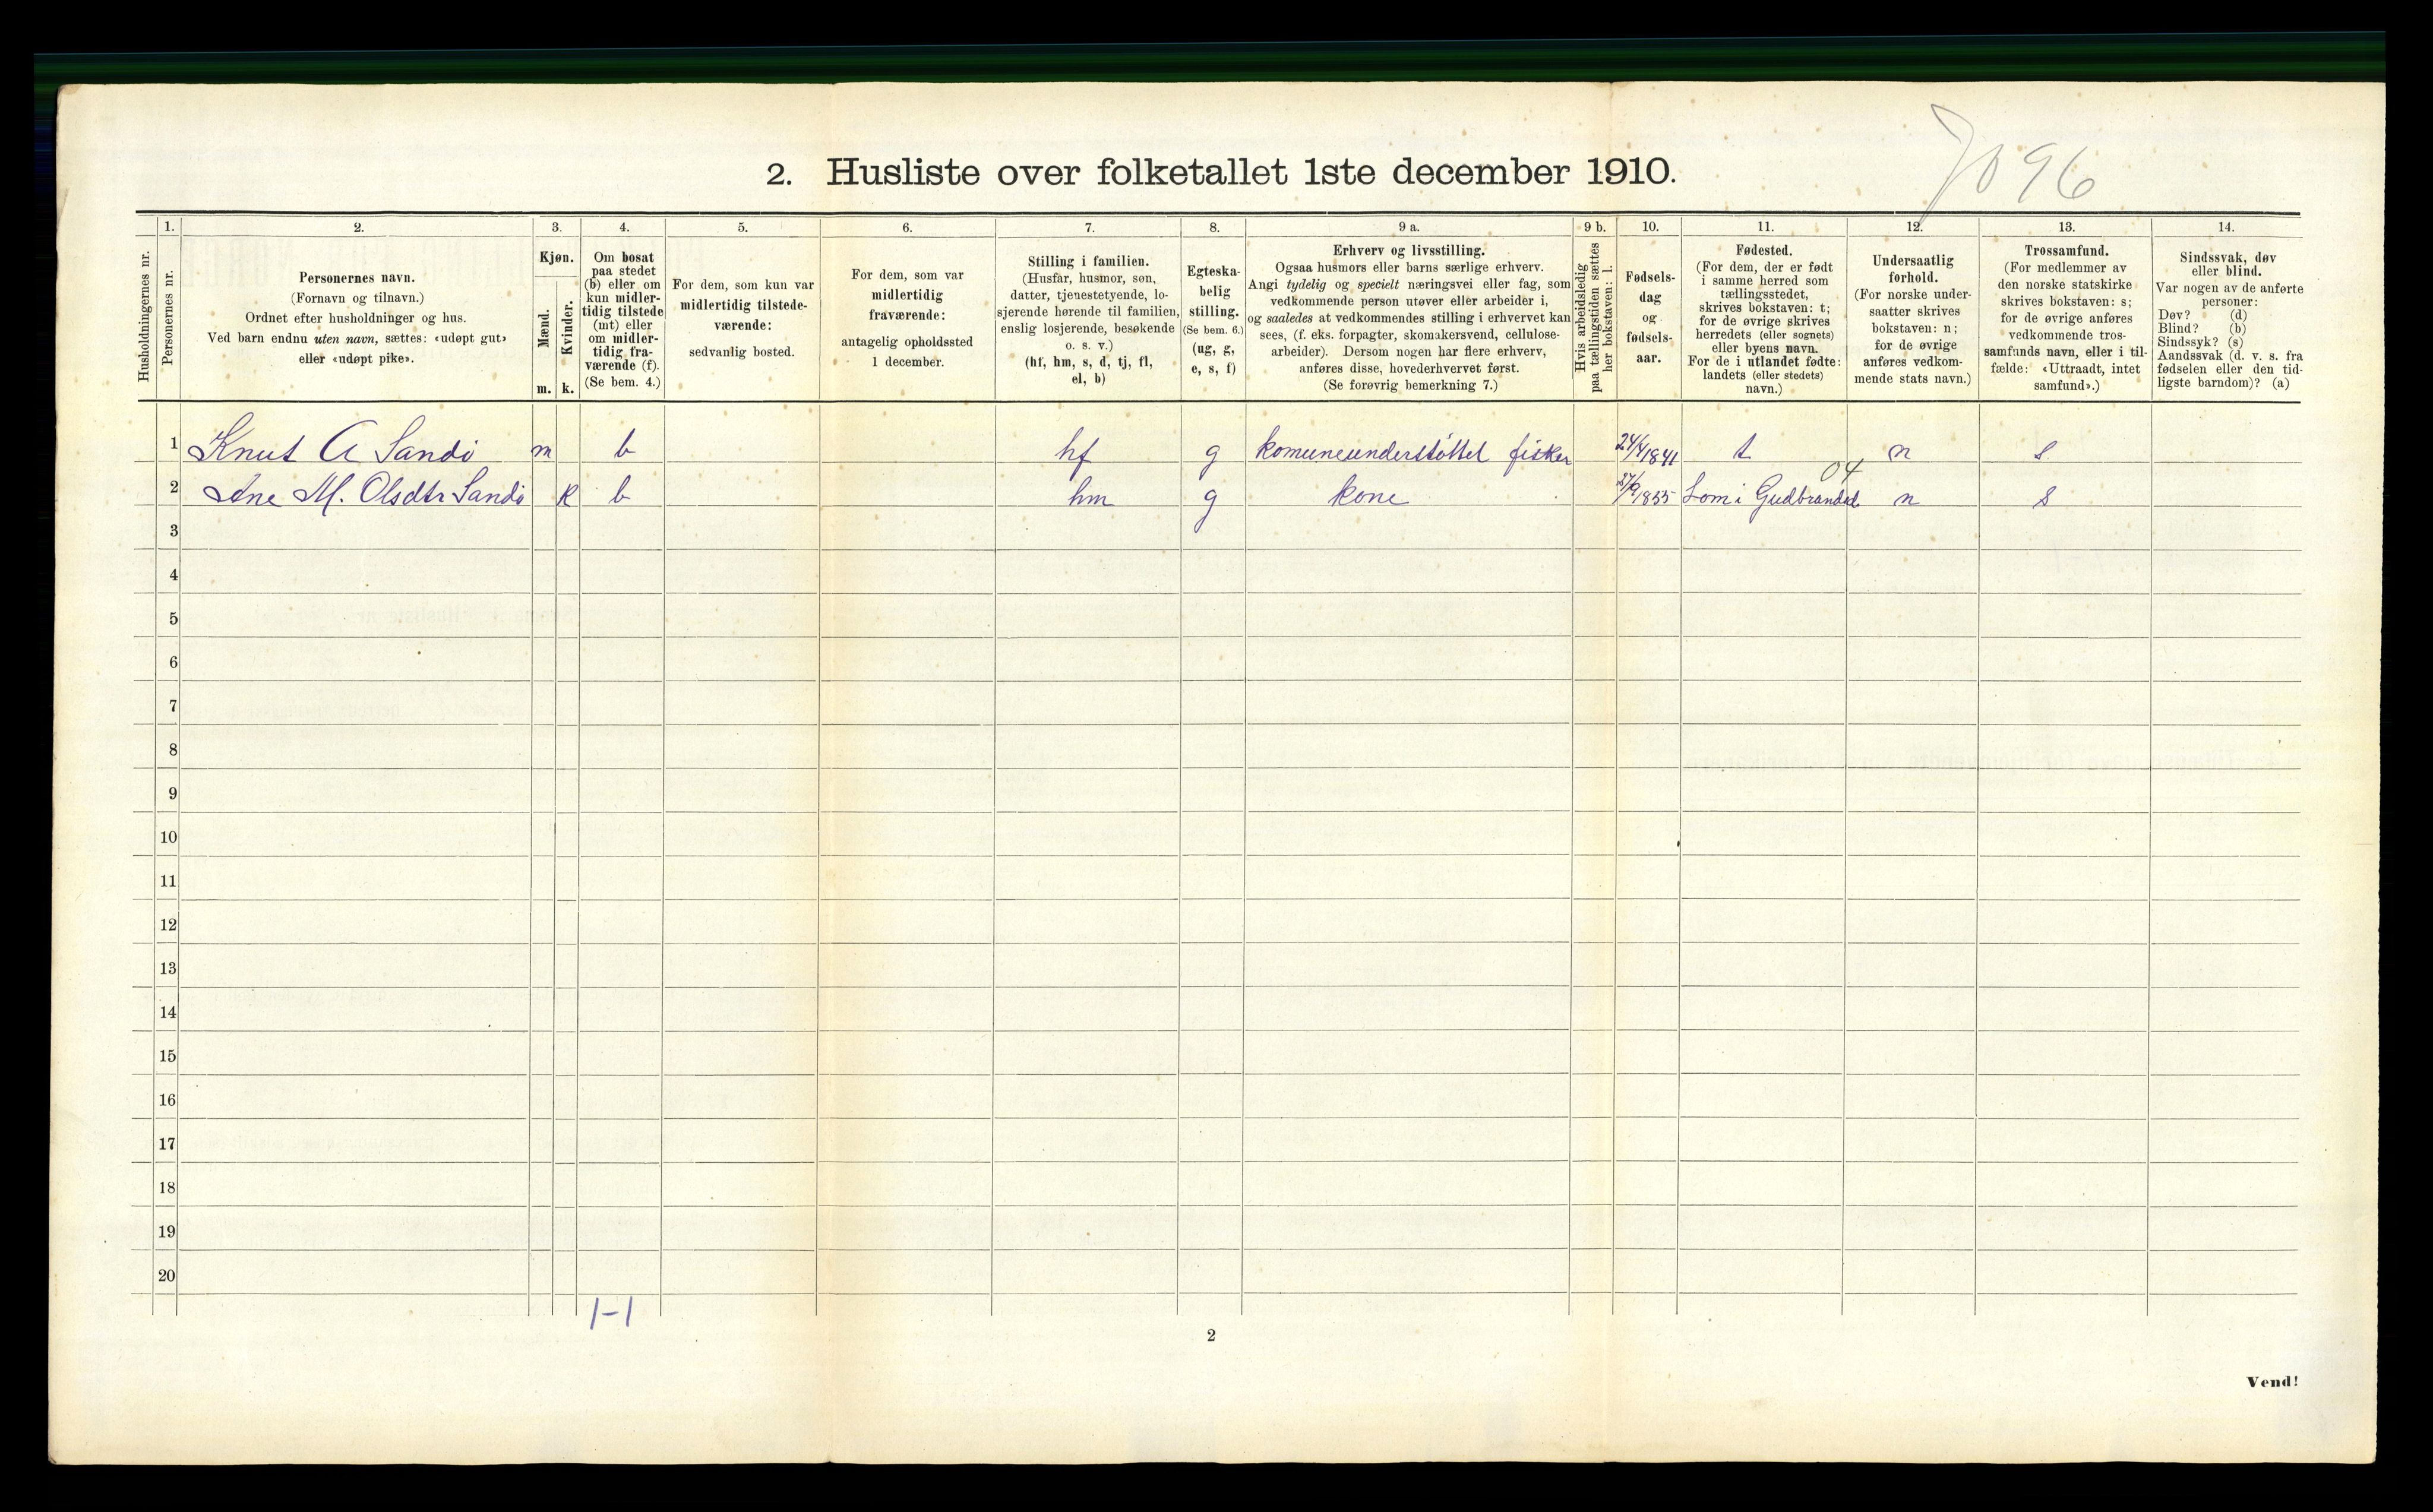 7096
2. Husliste over folketallet 1ste december 1910.
Husholdningernes nr.
1.
Personernes nr.
2.
Personernes navn.
(Fornavn og tilnavn.)
Ordnet efter husholdninger og hus.
Ved barn endnu uten navn, sættes: «udøpt gut»
eller «udøpt pike».
3.
Kjøn.
Mænd.
m.
Kvinder.
k.
4.
Om bosat
paa stedet
(b) eller om
kun midler-
tidig tilstede
(mt) eller
om midler-
tidig fra-
værende (f).
(Se bem. 4.)
5.
For dem, som kun var
midlertidig tilstede-
værende:
sedvanlig bosted.
6.
For dem, som var
midlertidig
fraværende:
antagelig opholdssted
1 december.
7.
Stilling i familien.
(Husfar, husmor, søn,
datter, tjenestetyende, lo-
sjerende hørende til familien,
enslig losjerende, besøkende
o. s. v.)
(hf, hm, s, d, tj, fl,
el, b)
8.
Egteska-
belig
stilling.
(Se bem. 6.)
(ug, g,
e, s, f)
9 a.
Erhverv og livsstilling.
Ogsaa husmors eller barns særlige erhverv.
Angi tydelig og specielt næringsvei eller fag, som
vedkommende person utøver eller arbeider i,
og saaledes at vedkommendes stilling i erhvervet kan
sees, (f. eks. forpagter, skomakersvend, cellulose-
arbeider). Dersom nogen har flere erhverv,
anføres disse, hovederhvervet først.
(Se forøvrig bemerkning 7.)
9 b.
Hvis arbeidsledig
paa tællingstiden sættes
her bokstaven: l.
10.
Fødsels-
dag
og
fødsels-
aar.
11.
Fødested.
(For dem, der er født
i samme herred som
tællingsstedet,
skrives bokstaven: t;
for de øvrige skrives
herredets (eller sognets)
eller byens navn.
For de i utlandet fødte:
landets (eller stedets)
navn.)
12.
Undersaatlig
forhold.
(For norske under-
saatter skrives
bokstaven: n;
for de øvrige
anføres vedkom-
mende stats navn.)
13.
Trossamfund.
(For medlemmer av
den norske statskirke
skrives bokstaven: s;
for de øvrige anføres
vedkommende tros-
samfunds navn, eller i til-
fælde: «Uttraadt, intet
samfund».)
14.
Sindssvak, døv
eller blind.
Var nogen av de anførte
personer:
Døv? (d)
Blind? (b)
Sindssyk? (s)
Aandssvak (d. v. s. fra
fødselen eller den tid-
ligste barndom)? (a)
1 Knut A Sandö m b hf g komuneunderstöttet fisker 24/4 1841 t n s
04
2 Ane M. Olsdtr Sandö k b hm g kone 27/9 1855 Lom i Gudbrandsd n s
3
4
5
6
7
8
9
10
11
12
13
14
15
16
17
18
19
20
1-1
2
Vend!